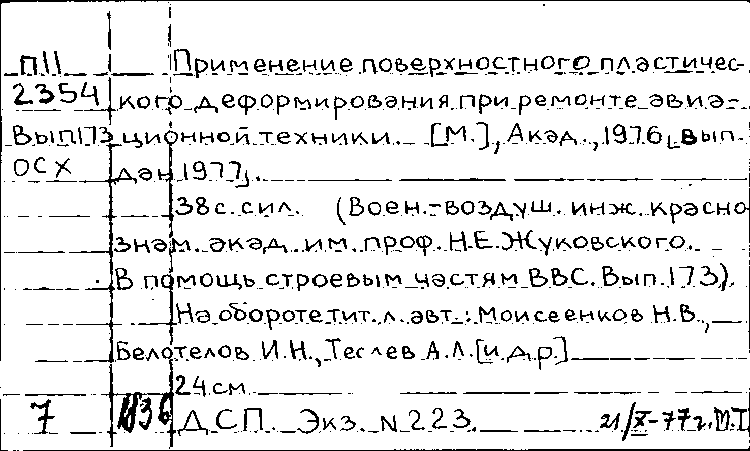 П11 Применение поверхностного пластичес-
2354 кого деформирования при ремонте авиа-
Вып173 ционной техники. [М.], Акад., 1976, вып.
ОСХ дан 1977,.
38 с. сил. (Воен.-воздуш. инж. красно
знам. акад. им. проф. Н.Е.Жуковского.
В помощь строевым частям ВВС. Вып.173).
На обороте тит. л. авт.: Моисеенков Н.В.,
Белотелов И.Н., Теслев А.Л.[и.д.р.]
24 см
7 1836 ДСП. Экз. N 223. 21/X-77г. М.Т